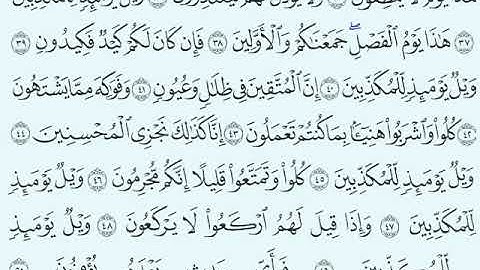 هَٰذَا يَوْمُ لَا يَنطِقُونَ ٣٥ وَلَا يُؤْذَنُ لَهُمْ فَيَعْتَذِرُونَ ٣٦ وَيْلٌ يَوْمَئِذٍ لِّلْمُكَذِّبِينَ
٣٧ هَٰذَا يَوْمُ الْفَصْلِ ۖ جَمَعْنَاكُمْ وَالْأَوَّلِينَ ٣٨ فَإِن كَانَ لَكُمْ كَيْدٌ فَكِيدُونِ ٣٩
وَيْلٌ يَوْمَئِذٍ لِّلْمُكَذِّبِينَ ٤٠ إِنَّ الْمُتَّقِينَ فِي ظِلَالٍ وَعُيُونٍ ٤١ وَفَوَاكِهَ مِمَّا يَشْتَهُونَ
٤٢ كُلُوا۟ وَاشْرَبُوا۟ هَنِيٓـًٔا بِمَا كُنتُمْ تَعْمَلُونَ ٤٣ إِنَّا كَذَٰلِكَ نَجْزِي الْمُحْسِنِينَ ٤٤
وَيْلٌ يَوْمَئِذٍ لِّلْمُكَذِّبِينَ ٤٥ كُلُوا۟ وَتَمَتَّعُوا۟ قَلِيلًا إِنَّكُم مُّجْرِمُونَ ٤٦ وَيْلٌ يَوْمَئِذٍ
لِّلْمُكَذِّبِينَ ٤٧ وَإِذَا قِيلَ لَهُمُ ارْكَعُوا۟ لَا يَرْكَعُونَ ٤٨ وَيْلٌ يَوْمَئِذٍ